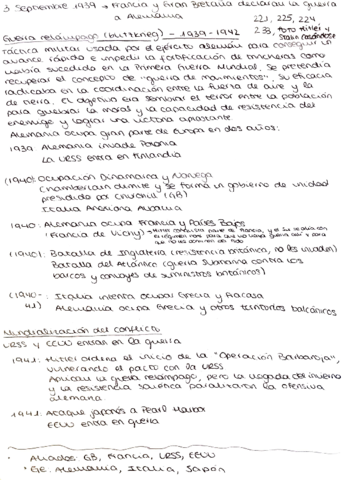 3 Septiembre 1939 → Francia y Gran Bretaña declaran la guerra
a Alemania
221, 225, 224
238, foto Hitler y
Stalin
Guerra relámpago (blitzkrieg) - 1939-1942
Táctica militar usada por el ejército alemán para conseguir un
avance rápido e impedir la fortificación de trincheras como
había sucedido en la Primera Guerra Mundial. Se pretendía
recuperar el concepto de "guerra de movimientos". Su eficacia
radicaba en la coordinación entre la fuerza de aire y la
de tierra. El objetivo era sembrar el terror entre la población
para quebrar la moral y la capacidad de resistencia del
enemigo y lograr una victoria aplastante.
Alemania ocupa gran parte de Europa en dos años:
1939 Alemania invade Polonia
La URSS entra en Finlandia
(1940: Ocupación Dinamarca y Noruega
Chamberlain dimite y se forma un gobierno de unidad
presidido por Churchill (GB)
Italia
1940: Alemania ocupa Francia y Países Bajos
(Francia de Vichy) → Hitler parte de Francia, y
(1940): Batalla de Inglaterra (resistencia británica, no les invaden)
Batalla del Atlántico (guerra submarina contra los
barcos y convoyes de suministros británicos)
(1940-: Italia intenta ocupar Grecia y fracasa
41) Alemania ocupa Grecia y otros territorios balcánicos
Mundialización del conflicto
URSS y EEUU entran en la guerra
1941: Hitler ordena el inicio de la "Operación Barbarroja",
vulnerando el pacto con la URSS
Aplican la guerra relámpago, pero la llegada del invierno
y la resistencia soviética paralizaron la ofensiva
alemana.
1941: Ataque japonés a Pearl Harbor
EEUU entra en guerra
• Aliados: GB, Francia, URSS, EEUU
• Eje: Alemania, Italia, Japón